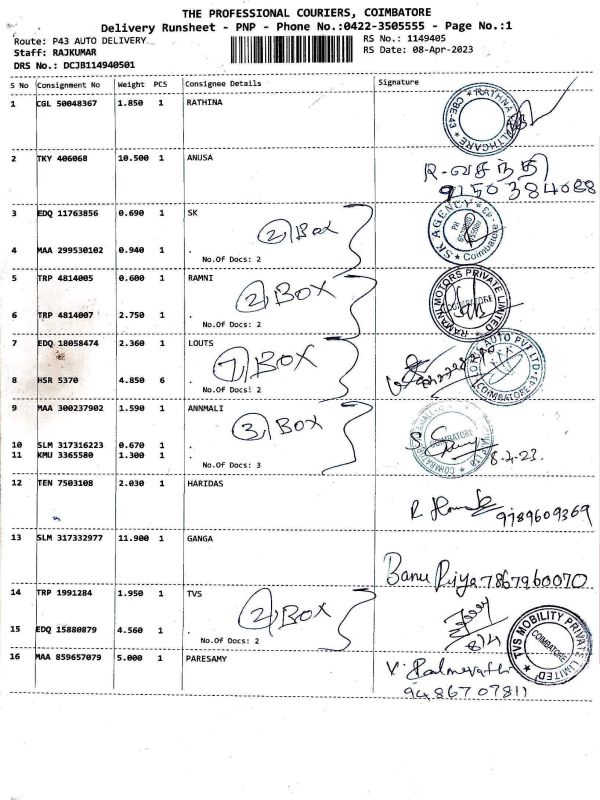 THE PROFESSIONAL COURIERS, COIMBATORE
Delivery Runsheet - PNP - Phone No.:0422-3505555 - Page No.:1
Route: P43 AUTO DELIVERY
RS No.: 1149405
Staff: RAJKUMAR
RS Date: 08-Apr-2023
DRS No.: DCJB114940501
S No Consignment No Weight PCS Consignee Details Signature
1 CGL 50048367 1.850 1 RATHINA
RATHNA HEALTHCARE CBE-43
2 TKY 406068 10.500 1 ANUSA
R. வசந்தி
9150384088
3 EDQ 11763856 0.690 1 SK
2 Box
SK AGENCY Coimbatore
4 MAA 299530102 0.940 1 .
No.Of Docs: 2
5 TRP 4814005 0.600 1 RAMNI
2 BOX
RAMANI MOTORS PRIVATE LIMITED COIMBATORE
6 TRP 4814007 2.750 1 .
No.Of Docs: 2
7 EDQ 18058474 2.360 1 LOUTS
7 BOX
AUTO PVT LTD COIMBATORE-43
8 HSR 5370 4.850 6 .
No.Of Docs: 2
9 MAA 300237902 1.590 1 ANNMALI
3 BOX
COIMBATORE
10 SLM 317316223 0.670 1 .
11 KMU 3365580 1.300 1 .
8.4.23.
No.Of Docs: 3
12 TEN 7503108 2.030 1 HARIDAS
9789609369
13 SLM 317332977 11.900 1 GANGA
Banu Priya 7867960070
14 TRP 1991284 1.950 1 TVS
2 BOX
8/4
TVS MOBILITY PRIVATE LIMITED COIMBATORE
15 EDQ 15880879 4.560 1 .
No.Of Docs: 2
16 MAA 859657079 5.000 1 PARESAMY
9486707811